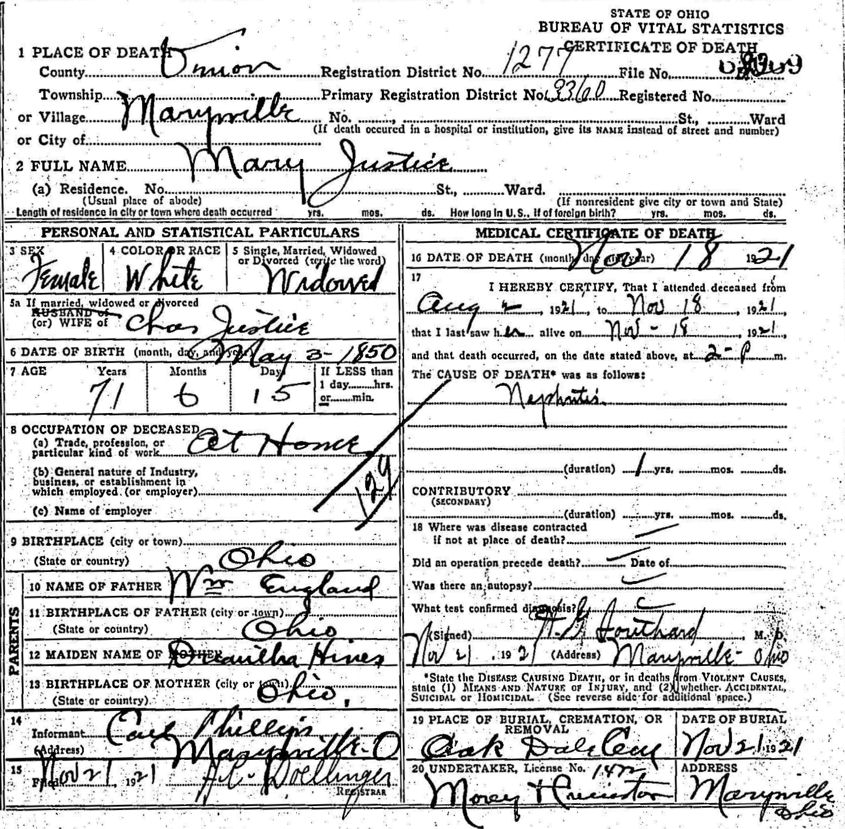 STATE OF OHIO
BUREAU OF VITAL STATISTICS
CERTIFICATE OF DEATH
1 PLACE OF DEATH
County Union Registration District No. 1277 File No.
Township Primary Registration District No. 9360 Registered No.
or Village Marysville No. , St., Ward
or City of (If death occured in a hospital or institution, give its NAME instead of street and number)
2 FULL NAME Mary Justice
(a) Residence. No. St., Ward.
(Usual place of abode) (If nonresident give city or town and State)
Length of residence in city or town where death occurred yrs. mos. ds. How long in U.S., if of foreign birth? yrs. mos. ds.
PERSONAL AND STATISTICAL PARTICULARS
3 SEX Female
4 COLOR OR RACE White
5 Single, Married, Widowed
or Divorced (write the word)
Widowed
5a If married, widowed or divorced
HUSBAND of
(or) WIFE of Chas Justice
6 DATE OF BIRTH (month, day, and year) May 3 - 1850
7 AGE Years Months Day If LESS than
1 day hrs.
or min.
71 6 15
8 OCCUPATION OF DECEASED
(a) Trade, profession, or
particular kind of work At Home
(b) General nature of Industry,
business, or establishment in
which employed (or employer)
(c) Name of employer
129
9 BIRTHPLACE (city or town)
(State or country) Ohio
PARENTS
10 NAME OF FATHER Wm England
11 BIRTHPLACE OF FATHER (city or town)
(State or country) Ohio
12 MAIDEN NAME OF MOTHER Hines
13 BIRTHPLACE OF MOTHER (city or town)
(State or country) Ohio.
14
Informant Phillips
(Address) Marysville - O
15
Filed Nov 21, 1921 Doellinger
REGISTRAR
MEDICAL CERTIFICATE OF DEATH
16 DATE OF DEATH (month, day and year) Nov 18 1921
17
I HEREBY CERTIFY, That I attended deceased from
Aug 2, 1921, to Nov 18, 1921,
that I last saw her alive on Nov - 18, 1921,
and that death occurred, on the date stated above, at 2 - P m.
The CAUSE OF DEATH* was as follows:
Nephritis
(duration) 1 yrs. mos. ds.
CONTRIBUTORY
(SECONDARY)
(duration) yrs. mos. ds.
18 Where was disease contracted
if not at place of death?
Did an operation precede death? Date of
Was there an autopsy?
What test confirmed diagnosis?
(Signed) Southard M. D.
Nov 21, 1921 (Address) Marysville - Ohio
*State the DISEASE CAUSING DEATH, or in deaths from VIOLENT CAUSES,
state (1) MEANS AND NATURE OF INJURY, and (2) whether ACCIDENTAL,
SUICIDAL or HOMICIDAL (See reverse side for additional space.)
19 PLACE OF BURIAL, CREMATION, OR
REMOVAL
Oak Dale Cem
DATE OF BURIAL
Nov 21 1921
20 UNDERTAKER, License No.
ADDRESS
Marysville
Ohio